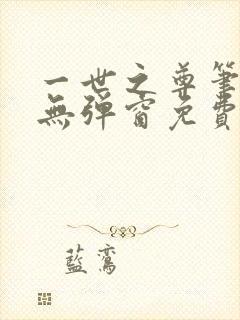 一世之尊筆
無彈窗免費
藍鸞